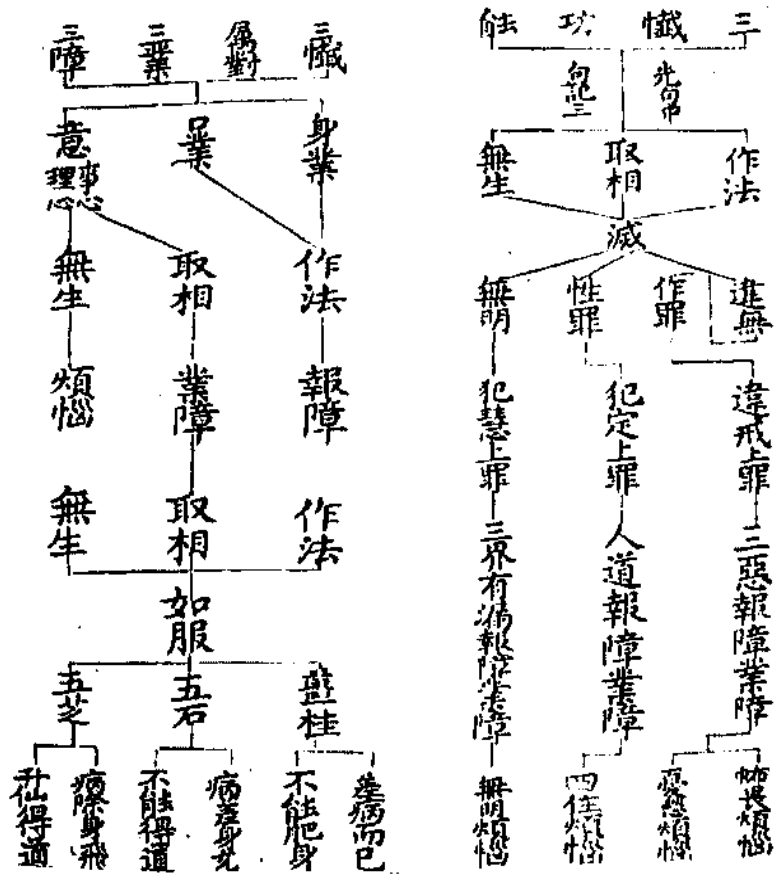 三懺功能
作法
取相
無生
滅
違無
作罪
性罪
無明
違戒上罪
犯定上罪
犯慧上罪
三惡報障業障
人道報障業障
三界有漏報障業障
怖畏煩惱
四住煩惱
無明煩惱
三懺
屬對
三業
三障
身業
口業
意
事心
理心
作法
取相
無生
報障
業障
煩惱
作法
取相
無生
如服
藍桂
五石
五芝
差病而已
不能肥身
病差身充
不能得道
病除身飛
升仙得道